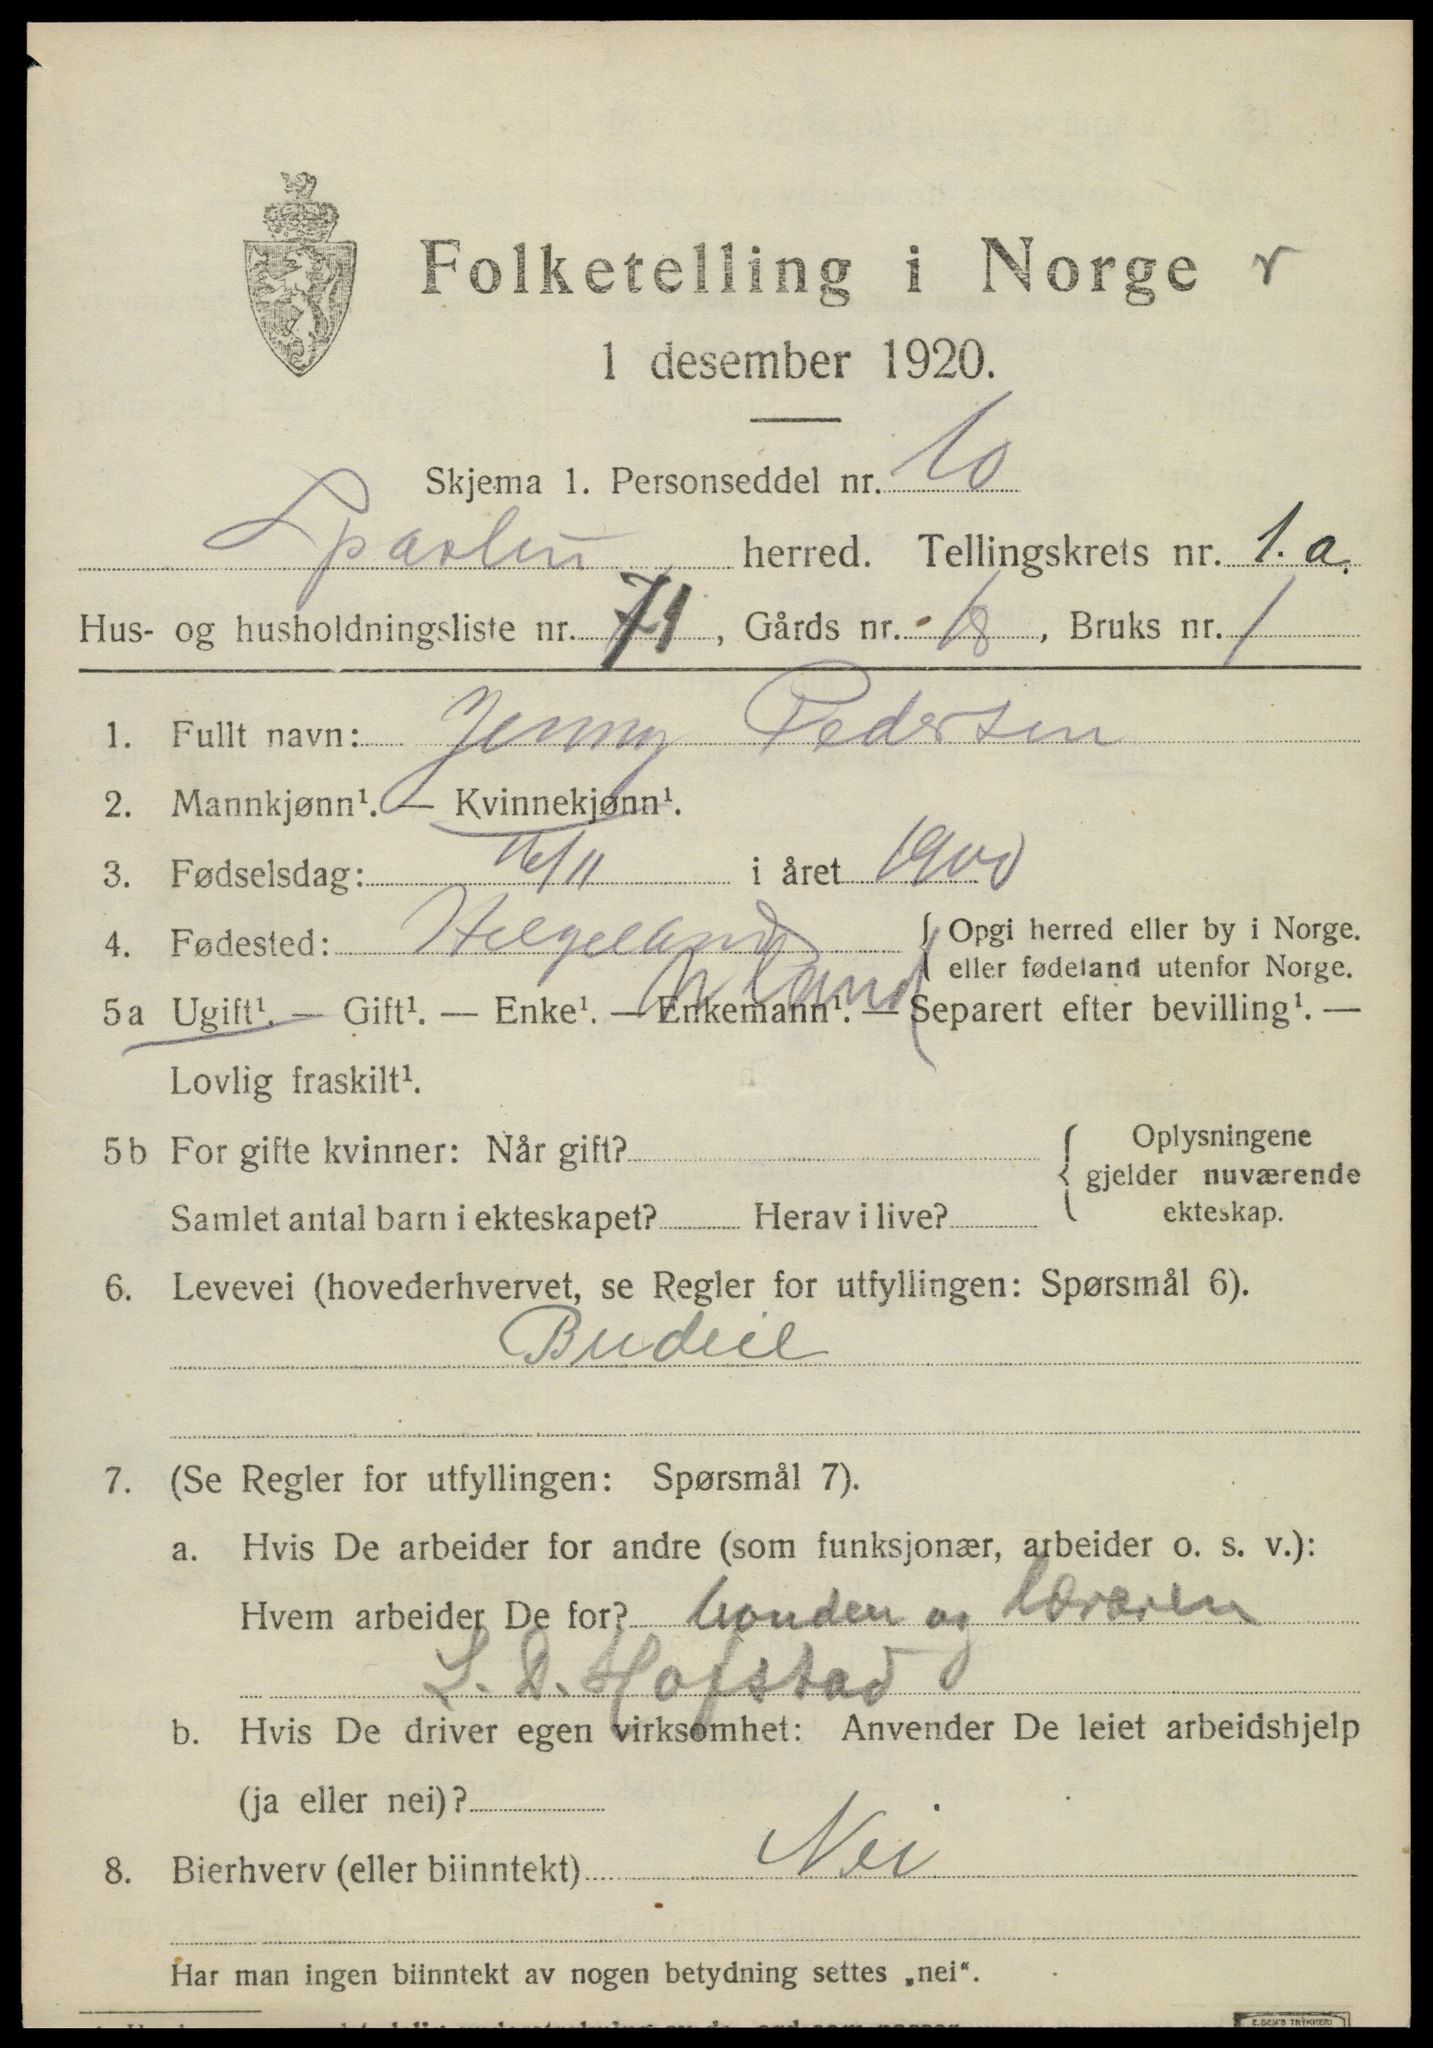 Folketelling i Norge
1 desember 1920.
Skjema 1. Personseddel nr. 10
Sparbu herred. Tellingskrets nr. 1. a.
Hus- og husholdningsliste nr. 71, Gårds nr. 18, Bruks nr. 1
1. Fullt navn: Jenny Pedersen
2. Mannkjønn¹. — Kvinnekjønn¹.
3. Fødselsdag: 16/11 i året 1900
4. Fødested: Helgeland { Opgi herred eller by i Norge.
eller fødeland utenfor Norge.
5a Ugift¹. — Gift¹. — Enke¹. — Enkemann¹. — Separert efter bevilling¹. —
Lovlig fraskilt¹.
5b For gifte kvinner: Når gift? { Oplysningene
gjelder nuværende
Samlet antal barn i ekteskapet? Herav i live? ekteskap.
6. Levevei (hovederhvervet, se Regler for utfyllingen: Spørsmål 6).
Budeie
7. (Se Regler for utfyllingen: Spørsmål 7).
a. Hvis De arbeider for andre (som funksjonær, arbeider o. s. v.):
Hvem arbeider De for? bonden og læreren
L. D. Hofstad
b. Hvis De driver egen virksomhet: Anvender De leiet arbeidshjelp
(ja eller nei)?
8. Bierhverv (eller biinntekt) Nei
Har man ingen biinntekt av nogen betydning settes „nei“.
E. SEM'S TRYKKERI